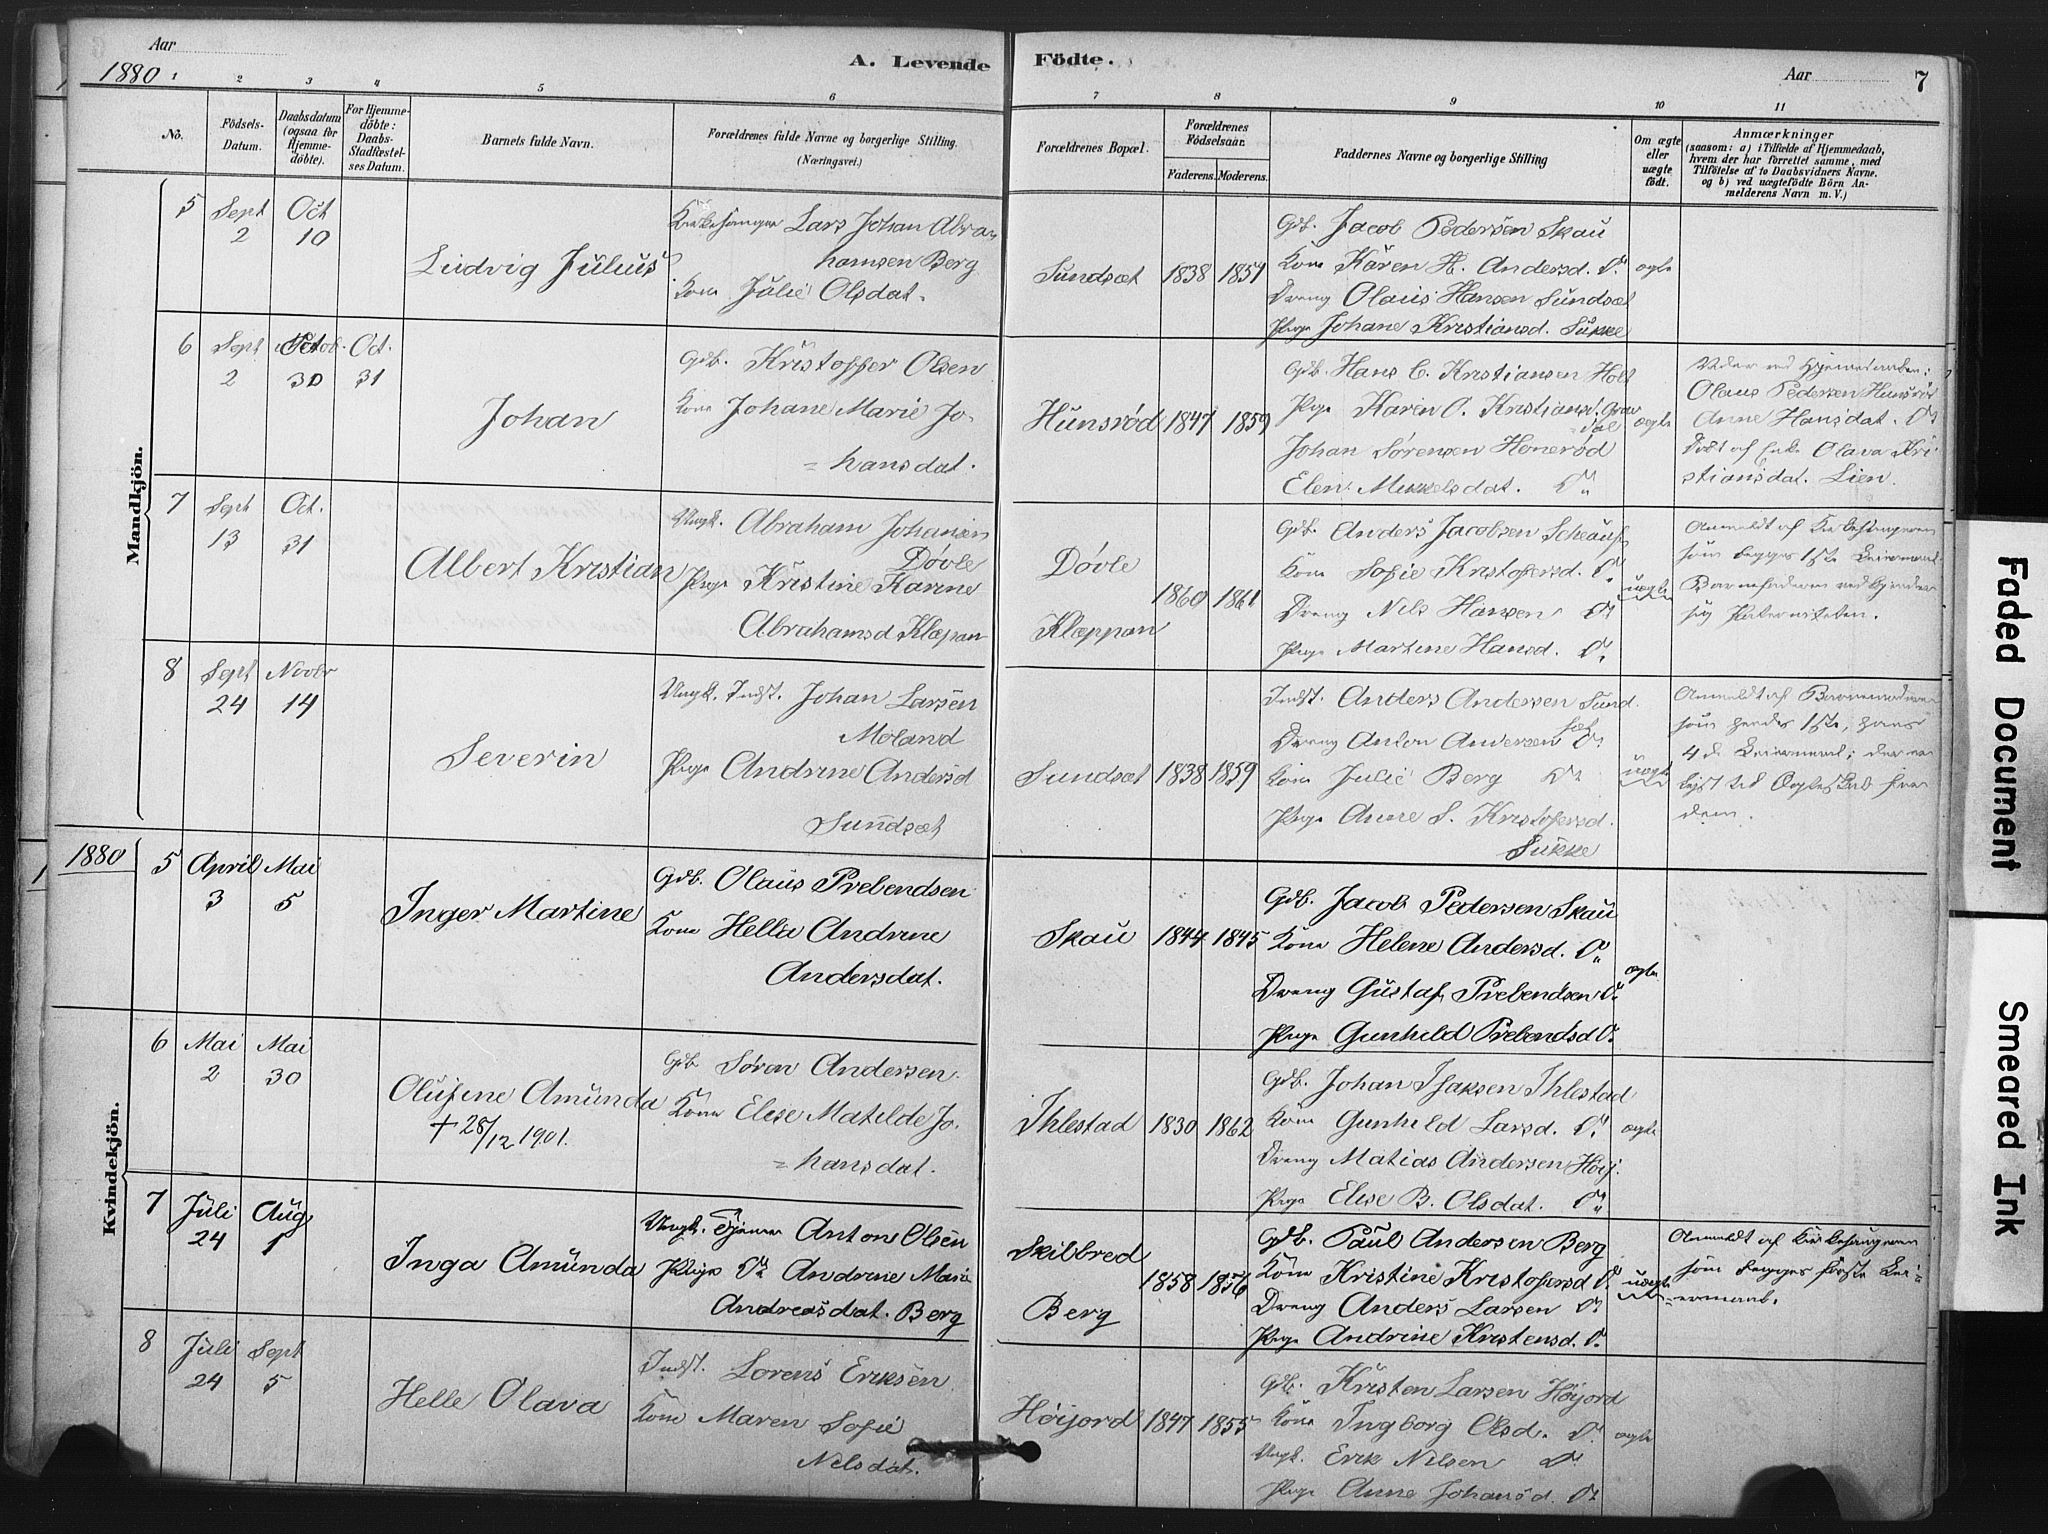 Aar
1880
A. Levende Födte.
Aar
7
1 2 3 4 5 6 7 8 9 10 11
No.
Födsels-
Datum.
Daabsdatum
(ogsaa for
Hjemme-
döbte).
For Hjemme-
döbte:
Daabs-
Stadfæstel-
ses Datum.
Barnets fulde Navn.
Forældrenes fulde Navne og borgerlige Stilling.
(Næringsvei.)
Forældrenes Bopæl.
Forældrenes
Födselsaar.
Faderens. Moderens.
Faddernes Navne og borgerlige Stilling
Om ægte
eller
uægte
födt.
Anmærkninger
(saasom: a) i Tilfælde af Hjemmedaab,
hvem der har forrettet samme, med
Tilföielse af to Daabsvidners Navne.
og b) ved uægtefödte Börn An-
melderens Navn m. V.)
Mandkjön.
5
Sept
2
Oct
10
Ludvig Julius
Kirkesanger Lars Johan Abra-
hamsen Berg
Kone Julie Olsdat.
Sundsæt
1838
1851
Gdb. Jacob Pedersen Skau
Kone Karen H. Andersd. Do
Dreng Olaus Hansen Sundsæt
Pige Johane Kristiansd. Sukke
ægte
6
Sept
2
Octob.
30
Oct.
31
Johan
Gdb. Kristoffer Olsen
Kone Johane Marie Jo-
= hansdat.
Hunsrød
1847
1859
Gdb. Hans C. Kristiansen Holt
Pige Karen O. Kristiansd. Grav
dal
Johan Sørensen Honerød
Elen Mikkelsdat. Do
ægte
Vidner ved Hjemedaaben:
Olaus Pedersen Hunsrød
Anne Hansdat. Do
Døbt af Enke Olava Kri-
stiansdat. Lien.
7
Sept
13
Oct.
31
Albert Kristian
Ungk. Abraham Johansen
Døvle
Pige Kristine Karine
Abrahamsd Klæpan
Døvle
Klæppan
1860
1861
Gdb. Anders Jacobsen Schauf
Kone Sofie Kristofersd. Do
Dreng Nils Hansen Do
Pige Martine Hansd. Do
uægte
Anmeldt af Kirkesangeren
som begges 1ste Leiermaal.
Barnefaderen vedkjender
sig Paterniteten.
8
Sept
24
Novbr
14
Severin
Ungk. Indst. Johan Larsen
Moland
Pige Andrine Andersd
Sundsæt
Sundsæt
1838
1859
Indst. Anders Andersen Sund
sæt
Dreng Anton Andersen Do
Kone Julie Berg Do
Pige Anne S. Kristofersd.
Sukke
uægte
Anmeldt af Barnemoderen
som hendes 1ste, hans
4de Leiermaal; der er
lyst til Ægteskab for
dem.
Kvindekjön.
1880
5
April
3
Mai
5
Inger Martine
Gdb. Olaus Prebendsen
Kone Hella Andrine
Andersdat.
Skau
1844
1845
Gdb. Jacob Pedersen Skau
Kone Helene Andersd. Do
Dreng Gustaf Prebendsen Do
Pige Gunhild Prebendsd Do
ægte
6
Mai
2
Mai
30
Olufine Amunda
+ 28/12 1901.
Gdb Søren Andersen.
Kone Elise Matilde Jo.
= hansdat.
Ihlestad
1830
1862
Gdb. Johan Isaksen Ihlestad
Kone Gunhild Larsd. Do
Dreng Matias Andersen Høij.
Pige Elise B. Olsdat. Do
ægte
7
Juli
24
Aug
1
Inga Amunda
Ungk. Tjener Anton Olsen
Pige Do Andrine Marie
Andreasdat. Berg
Skilbred
Berg
1858
1856
Gdb. Paul Andersen Berg
Kone Kristine Kristofersd Do
Dreng Anders Larsen Do
Pige Andrine Kristensd. Do
uægte
Anmeldt af Kirkesangeren
som begges første Lei-
ermaal.
8
Juli
24
Sept
5
Helle Olava
Indst. Lorens Eriksen
Kone Maren Sofie
Nilsdat.
Høijord
1847
1855
Gdb. Kristen Larsen Høijord
Kone Ingborg Olsd. Do
Ungk. Erik Nilsen Do
Pige Anne Johansd. Do
ægte
Faded Document
Smeared Ink